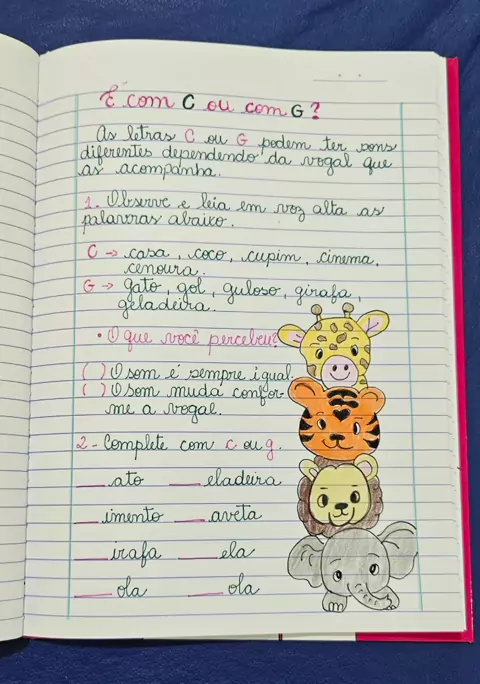 É com C ou com G?
As letras C ou G podem ter sons
diferentes dependendo da vogal que
as acompanha.
1. Observe e leia em voz alta as
palavras abaixo.
C → casa, coco, cupim, cinema,
cenoura.
G → gato, gol, guloso, girafa,
geladeira.
• O que você percebeu?
( ) O som é sempre igual.
( ) O som muda confor-
me a vogal.
2- Complete com c ou g.
___ato ___eladeira
___imento ___aveta
___irafa ___ela
___ola ___ola